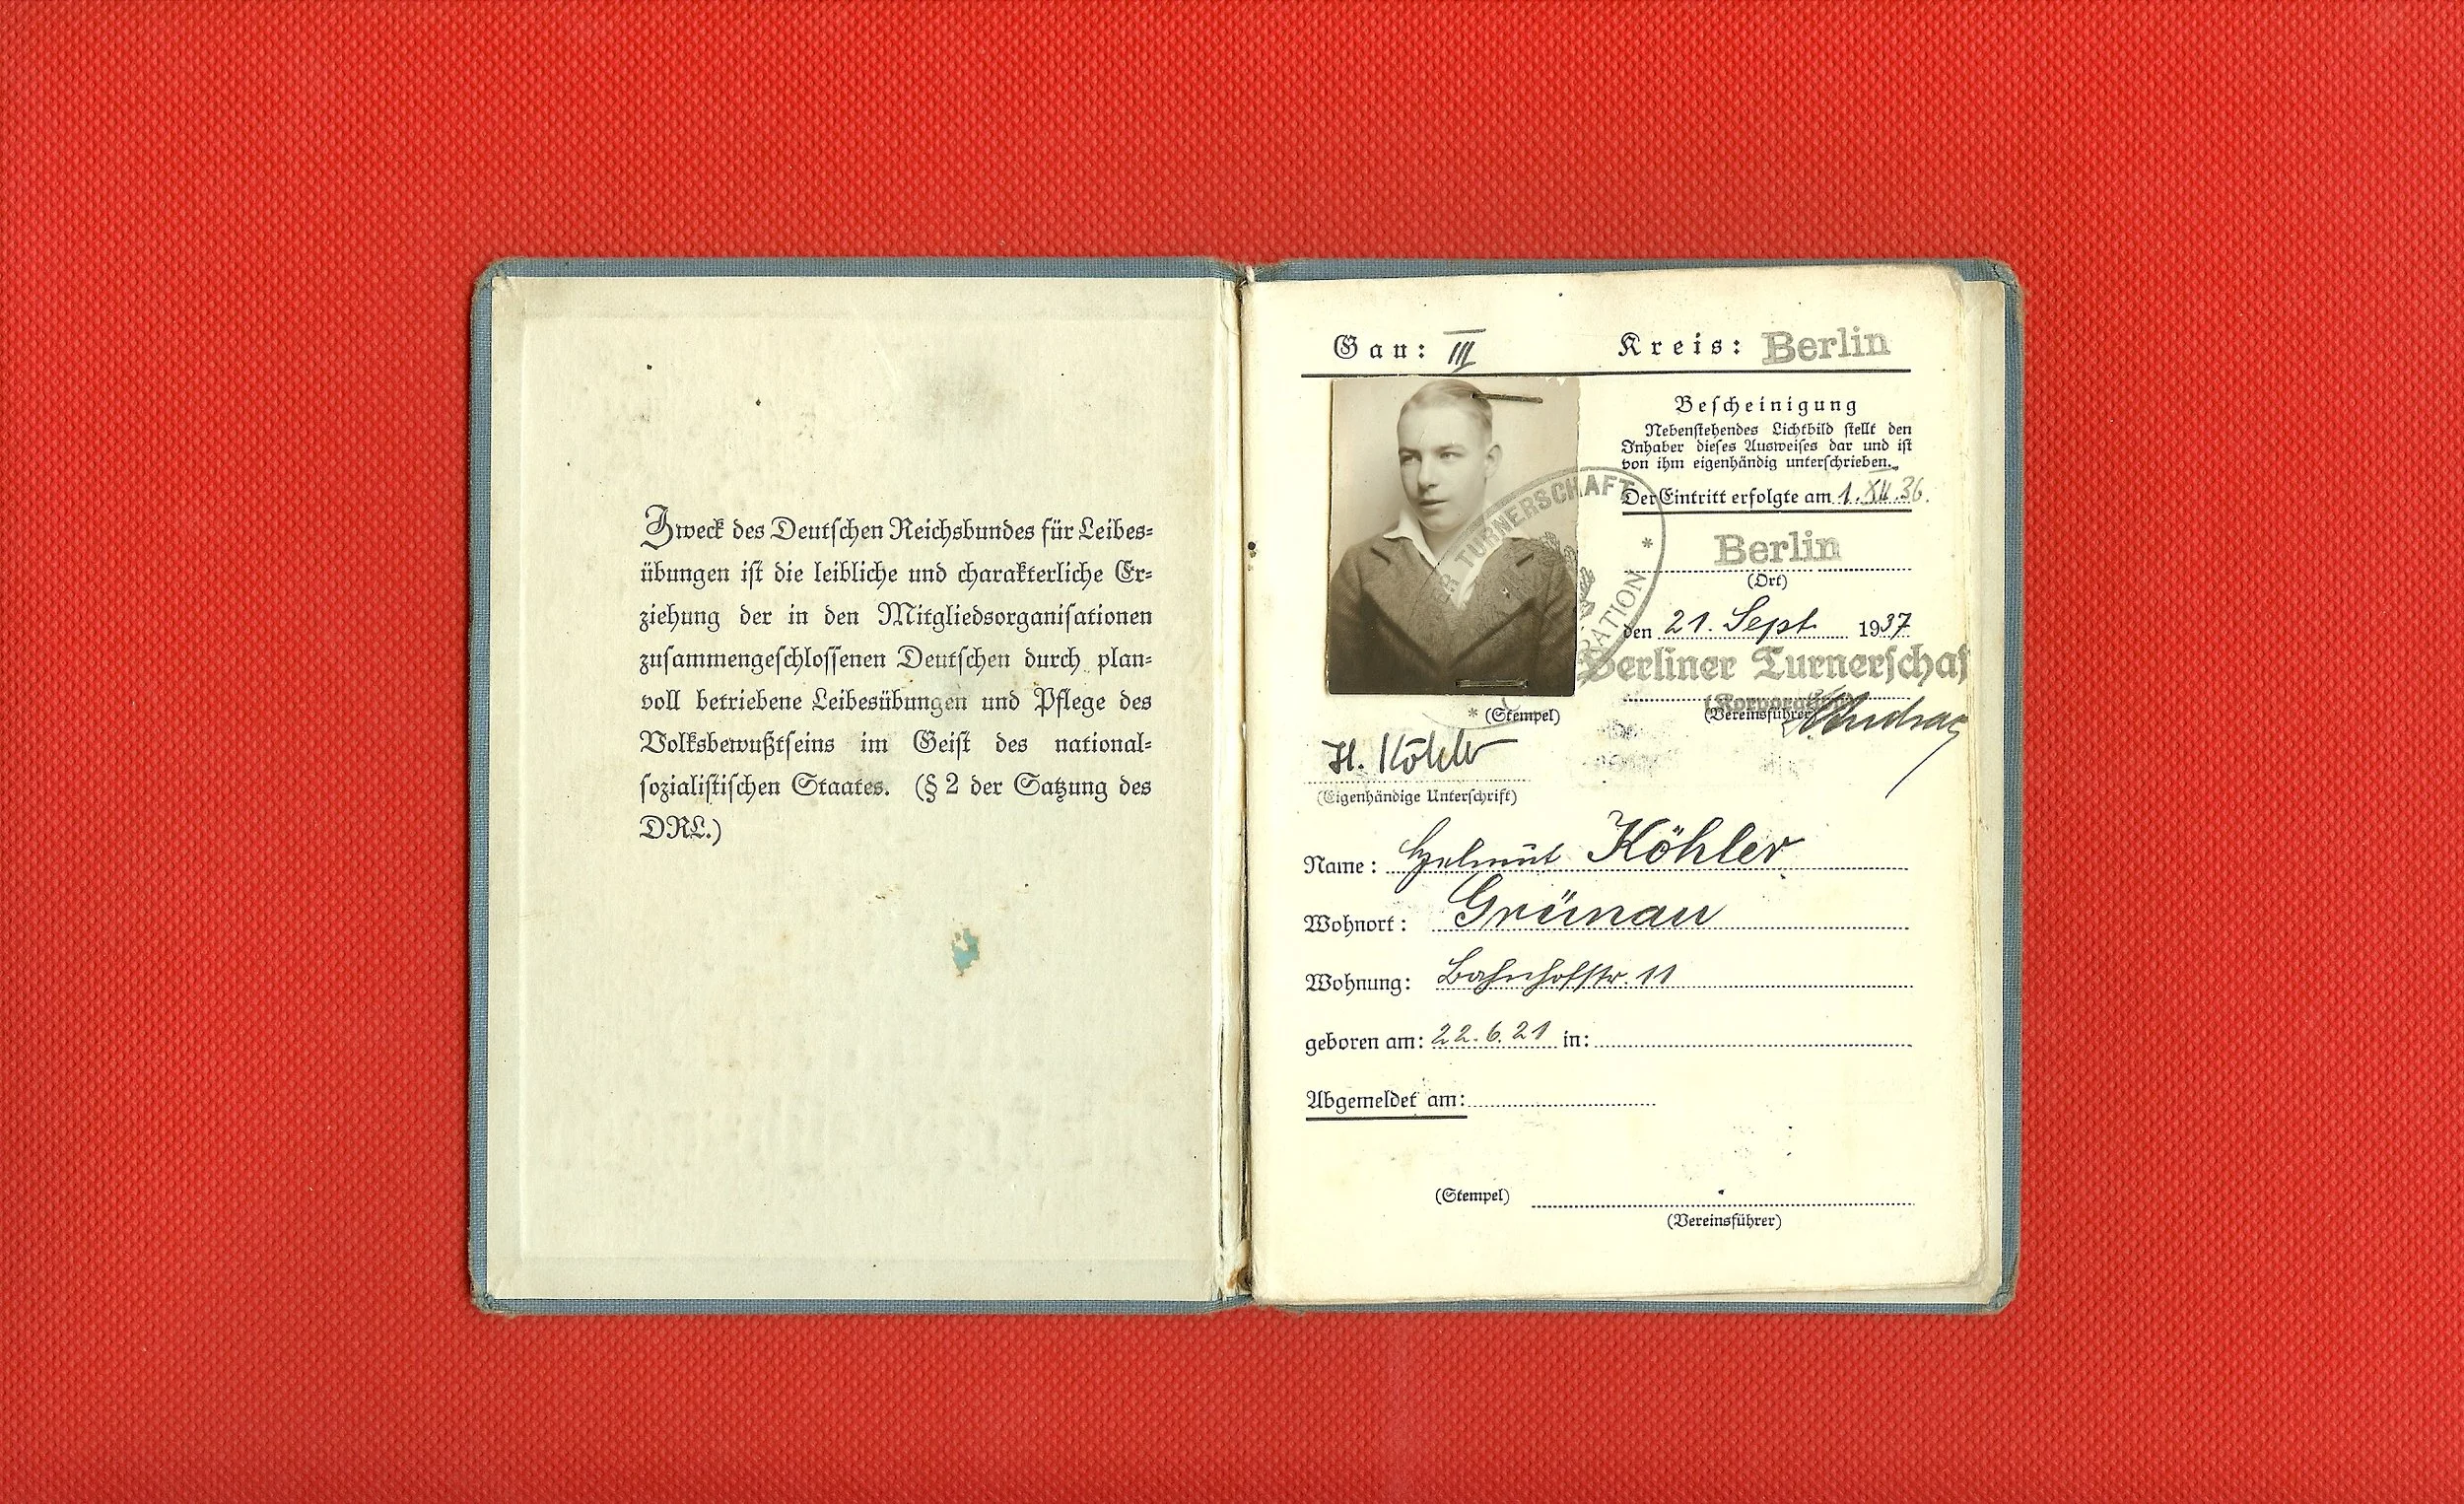 Zweck des Deutschen Reichsbundes für Leibes-
übungen ist die leibliche und charakterliche Er-
ziehung der in den Mitgliedsorganisationen
zusammengeschlossenen Deutschen durch plan-
voll betriebene Leibesübungen und Pflege des
Volksbewußtseins im Geist des national-
sozialistischen Staates. (§ 2 der Satzung des
DRL.)
Gau: III Kreis: Berlin
Bescheinigung
Nebenstehendes Lichtbild stellt den
Inhaber dieses Ausweises dar und ist
von ihm eigenhändig unterschrieben.
Der Eintritt erfolgte am 1. XII. 36.
TURNERSCHAFT
Berlin
(Ort)
den 21. Sept 1937
Berliner Turnerschaf
(Korporation)
(Stempel) (Vereinsführer)
H. Köhler
(Eigenhändige Unterschrift)
Name: Helmut Köhler
Wohnort: Grünau
Wohnung: Bahnhofstr. 11
geboren am: 22.6.21 in:
Abgemeldet am:
(Stempel)
(Vereinsführer)